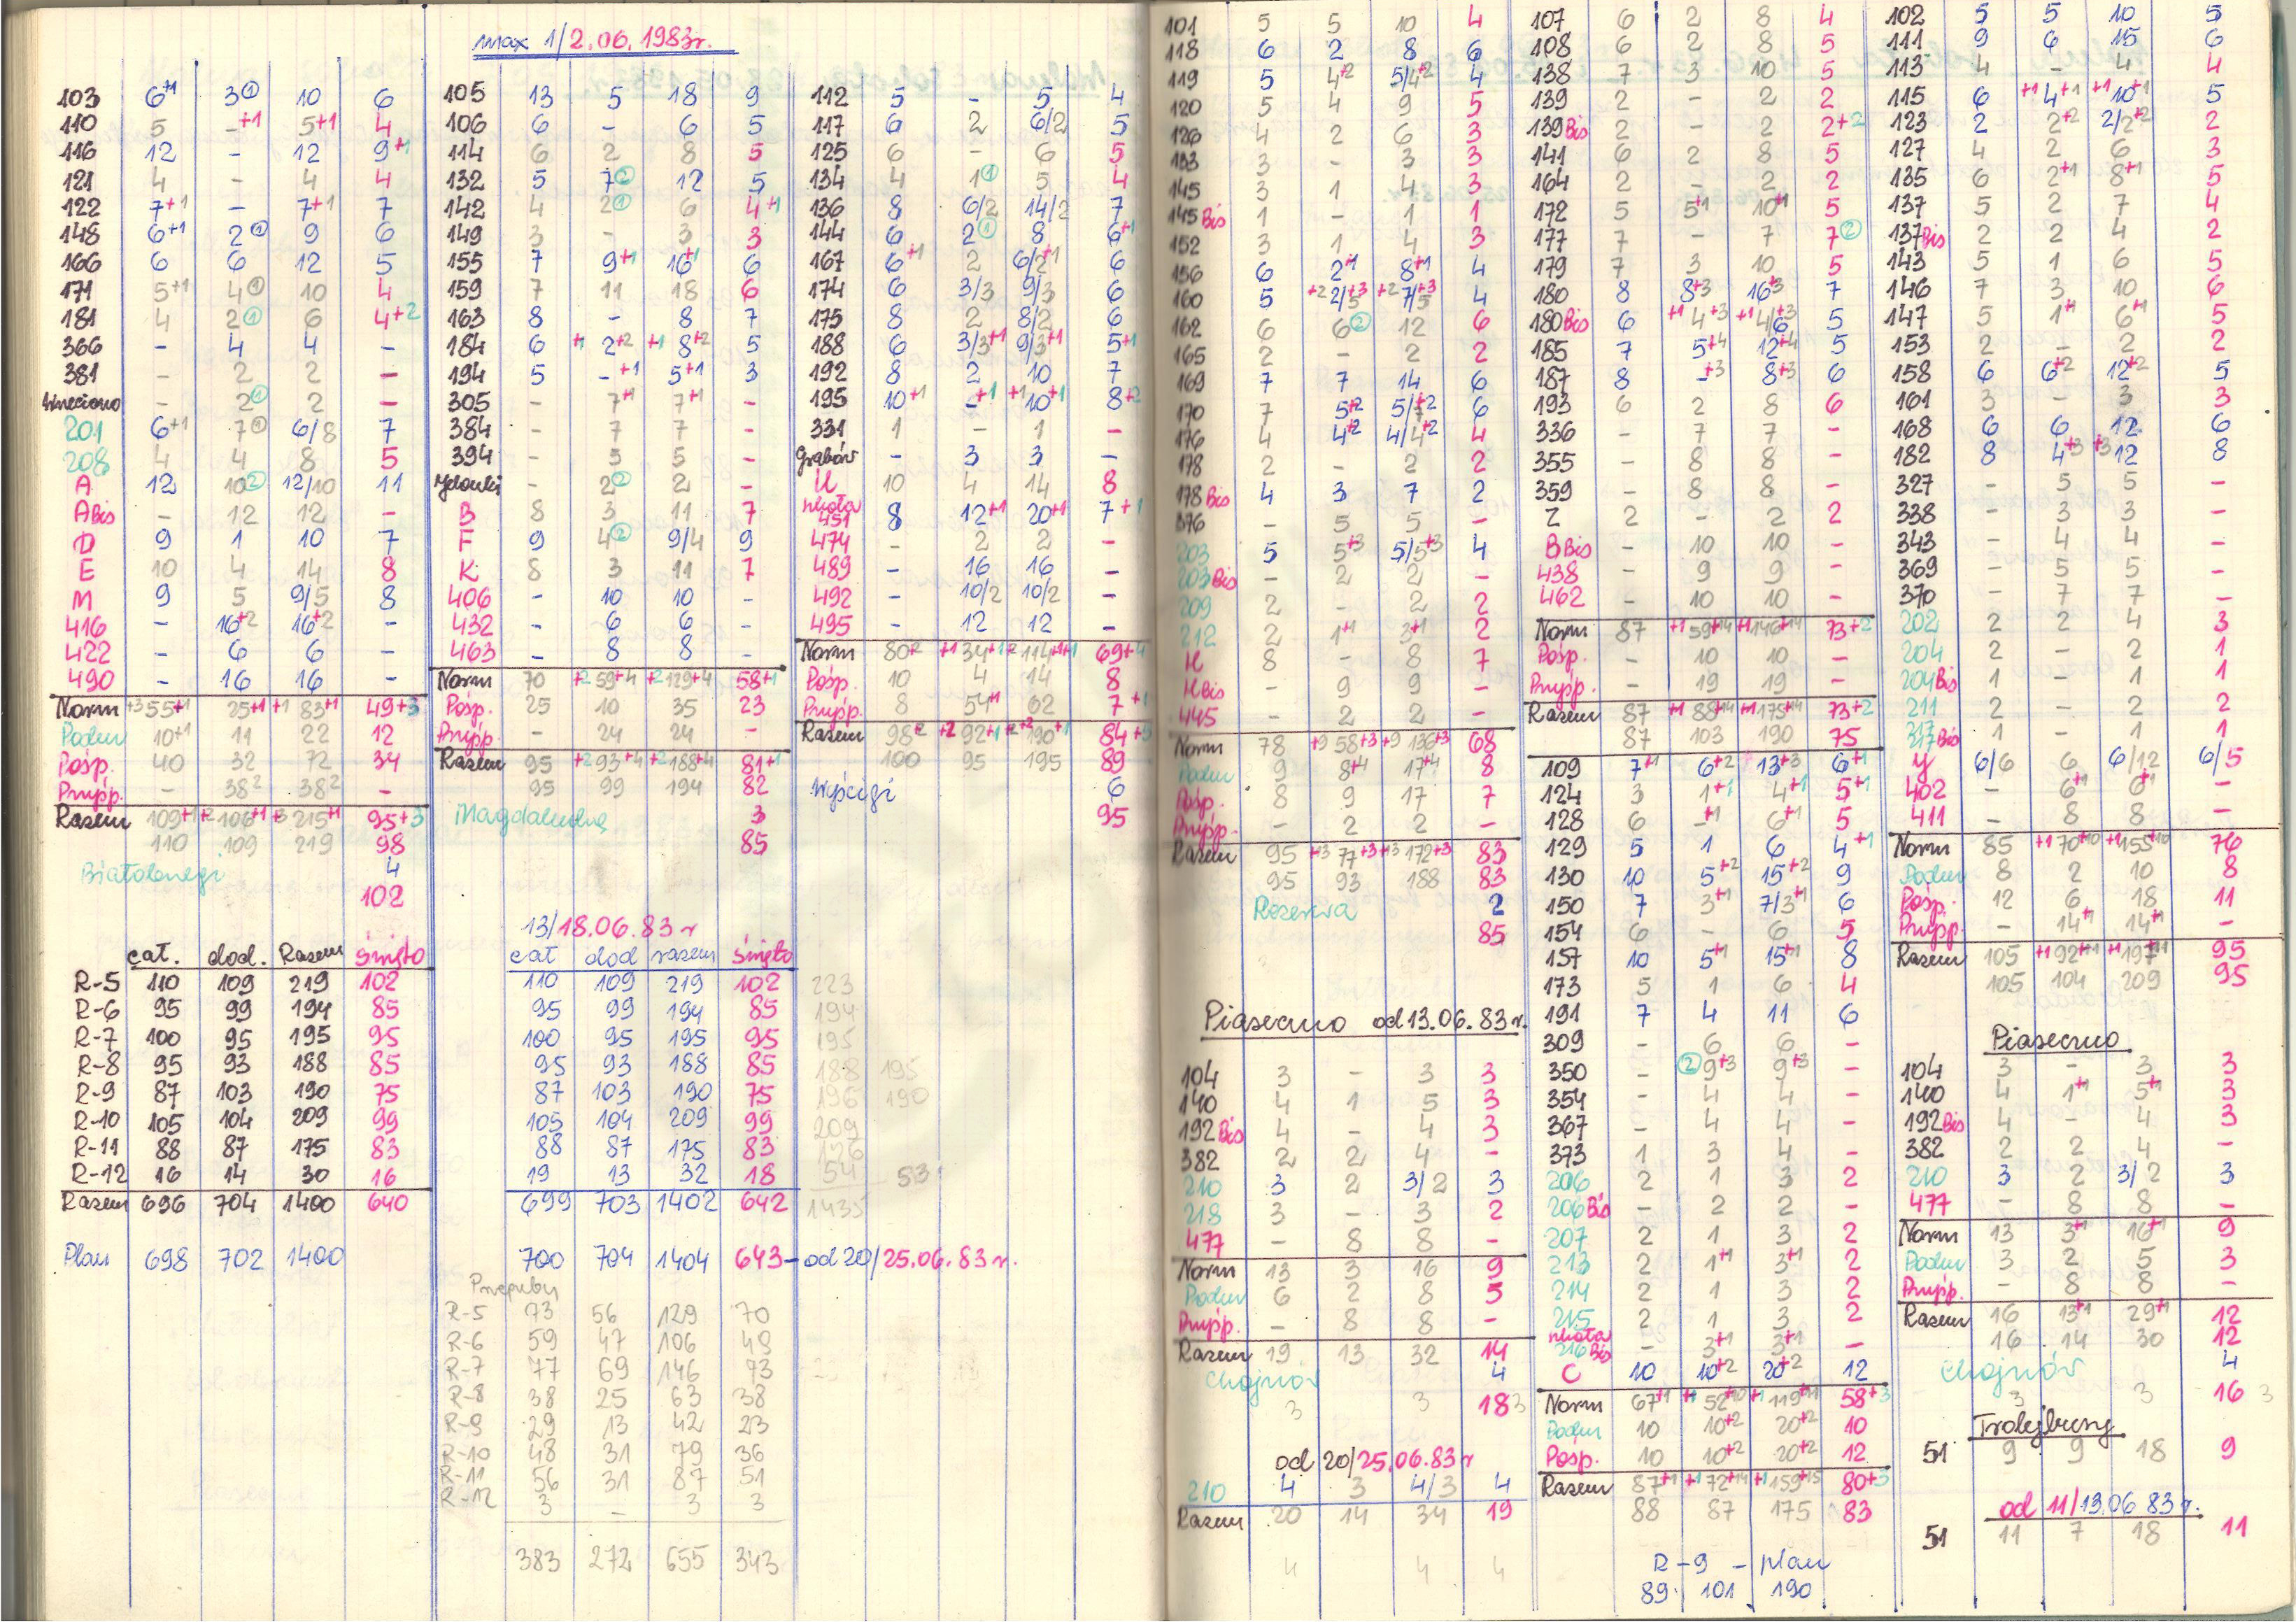 max 1/2.06.1983r.
103 6+1 3① 10 6
110 5 -+1 5+1 4
116 12 - 12 9+1
121 4 - 4 4
122 7+1 - 7+1 7
148 6+1 2① 9 6
166 6 6 12 5
171 5+1 4① 10 4
181 4 2① 6 4+2
366 - 4 4 -
381 - 2 2 -
- 2① 2 -
201 6+1 7① 6/8 7
208 4 4 8 5
A 12 10② 12/10 11
A Bis - 12 12 -
D 9 1 10 7
E 10 4 14 8
M 9 5 9/5 8
416 - 16+2 16+2 -
422 - 6 6 -
490 - 16 16 -
Norm +3 55+1 25+1 +1 83+1 49+3
Podm 10+1 11 22 12
Pośp. 40 32 72 34
Przyśp. - 38² 38² -
Razem 109+1 +2 106+1 +3 215+1 95+3
110 109 219 98
Białołenegi 4
102
105 13 5 18 9
106 6 - 6 5
114 6 2 8 5
132 5 7② 12 5
142 4 2① 6 4+1
149 3 - 3 3
155 7 9+1 16+1 6
159 7 11 18 6
163 8 - 8 7
184 6 +1 2+2 +1 8+2 5
194 5 -+1 5+1 3
305 - 7+1 7+1 -
384 - 7 7 -
394 - 5 5 -
- 2② 2 -
B 8 3 11 7
F 9 4② 9/4 9
K 8 3 11 7
406 - 10 10 -
432 - 6 6 -
463 - 8 8 -
Norm 70 +2 59+4 +2 129+4 58+1
Pośp. 25 10 35 23
Przyśp. - 24 24 -
Razem 95 +2 93+4 +2 188+4 81+1
95 99 194 82
Magdalenka 3
85
112 5 - 5 4
117 6 2 6/2 5
125 6 - 6 5
134 4 1① 5 4
136 8 6/2 14/2 7
144 6 2① 8 6+1
167 6+1 2 6/2+1 6
174 6 3/3 9/3 6
175 8 2 8/2 6
188 6 3/3+1 9/3+1 5+1
192 8 2 10 7
195 10+1 -+1 +1 10+1 8+2
331 1 - 1 -
Grabów - 3 3 -
U 10 4 14 8
szkoła 451 8 12+1 20+1 7+1
474 - 2 2 -
489 - 16 16 -
492 - 10/2 10/2 -
495 - 12 12 -
Norm 80+2 +1 34+1 +2 114+1+1 69+4
Pośp. 10 4 14 8
Przyśp. 8 54+1 62 7+1
Razem 98+2 +2 92+1 +2 190+1 84+5
100 95 195 89
Wyścigi 6
95
cał. dod. Razem święto
R-5 110 109 219 102
R-6 95 99 194 85
R-7 100 95 195 95
R-8 95 93 188 85
R-9 87 103 190 75
R-10 105 104 209 99
R-11 88 87 175 83
R-12 16 14 30 16
Razem 696 704 1400 640
Plan 698 702 1400
13/18.06.83 r
cał dod razem święto
110 109 219 102 223
95 99 194 85 194
100 95 195 95 195
95 93 188 85 188 195
87 103 190 75 196 190
105 104 209 99 209
88 87 175 83 176
19 13 32 18 54 53
699 703 1402 642 1435
700 704 1404 643 - od 20/25.06.83 r.
Przeguby
R-5 73 56 129 70
R-6 59 47 106 48
R-7 77 69 146 93
R-8 38 25 63 38
R-9 29 13 42 23
R-10 48 31 79 36
R-11 56 31 87 51
R-12 3 - 3 3
383 272 655 343
101 5 5 10 4
118 6 2 8 6
119 5 4+2 5/4+2 4
120 5 4 9 5
126 4 2 6 3
133 3 - 3 3
145 3 1 4 3
145 Bis 1 - 1 1
152 3 1 4 3
156 6 2+1 8+1 4
160 5 +2 2/5+3 +2 7/5+3 4
162 6 6② 12 6
165 2 - 2 2
169 7 7 14 6
170 7 5+2 5/7+2 6
176 4 4+2 4/4+2 4
178 2 - 2 2
178 Bis 4 3 7 2
376 - 5 5 -
203 5 5+3 5/5+3 4
203 Bis - 2 2 -
209 2 - 2 2
212 2 1+1 3+1 2
H 8 - 8 7
H Bis - 9 9 -
445 - 2 2 -
Norm 78 +9 58+3 +9 136+3 68
Podm 9 8+4 17+4 8
Pośp. 8 9 17 7
Przyśp. - 2 2 -
Razem 95 +13 77+3 +13 172+3 83
95 93 188 83
Rezerwa 2
85
Piaseczno od 13.06.83 r.
104 3 - 3 3
140 4 1 5 3
192 Bis 4 - 4 3
382 2 2 4 -
210 3 2 3/2 3
218 3 - 3 2
477 - 8 8 -
Norm 13 3 16 9
Podm 6 2 8 5
Przyśp. - 8 8 -
Razem 19 13 32 14
Chojnów 4
3 3 18 3
od 20/25.06.83 r
210 4 3 4/3 4
Razem 20 14 34 19
4 4 4
107 6 2 8 4
108 6 2 8 5
138 7 3 10 5
139 2 - 2 2
139 Bis 2 - 2 2+2
141 6 2 8 5
164 2 - 2 2
172 5 5+1 10+1 5
177 7 - 7 7②
179 7 3 10 5
180 8 8+3 16+3 7
180 Bis 6 +1 4+3 +1 4/6+3 5
185 7 5+4 12+4 5
187 8 -+3 8+3 6
193 6 2 8 6
336 - 7 7 -
355 - 8 8 -
359 - 8 8 -
Z 2 - 2 2
B Bis - 10 10 -
438 - 9 9 -
462 - 10 10 -
Norm 87 +1 59+14 +1 146+14 73+2
Pośp. - 10 10 -
Przyśp. - 19 19 -
Razem 87 +1 88+14 +1 175+14 73+2
87 103 190 75
109 7+1 6+2 13+3 6+1
124 3 1+1 4+1 5+1
128 6 -+1 6+1 5
129 5 1 6 4+1
130 10 5+2 15+2 9
150 7 3+1 7/3+1 6
154 6 - 6 5
157 10 5+1 15+1 8
173 5 1 6 4
191 7 4 11 6
309 - 6 6 -
350 - ②9+3 9+3 -
354 - 4 4 -
367 - 4 4 -
373 1 3 4 -
206 2 1 3 2
206 Bis - 2 2 -
207 2 1 3 2
213 2 1+1 3+1 2
214 2 1 3 2
215 2 1 3 2
szkoła 216 Bis - 3+1 3+1 -
C 10 10+2 20+2 12
Norm 67+1 +1 52+10 +1 119+11 58+3
Podm 10 10+2 20+2 10
Pośp. 10 10+2 20+2 12
Razem 87+1 +1 72+14 +1 159+15 80+3
88 87 175 83
R-9 - plan
89 101 190
102 5 5 10 5
111 9 6 15 6
113 4 - 4 4
115 6 +1 4+1 +1 10+1 5
123 2 2+2 2/2+2 2
127 4 2 6 3
135 6 2+1 8+1 5
137 5 2 7 4
137 Bis 2 2 4 2
143 5 1 6 5
146 7 3 10 6
147 5 1+1 6+1 5
153 2 - 2 2
158 6 6+2 12+2 5
161 3 - 3 3
168 6 6 12 6
182 8 4+3 +3 12 8
327 - 5 5 -
338 - 3 3 -
343 - 4 4 -
369 - 5 5 -
370 - 7 7 -
202 2 2 4 3
204 2 - 2 1
204 Bis 1 - 1 1
211 2 - 2 2
217 Bis 1 - 1 1
Y 6/6 6 6/12 6/5
402 - 6+1 6+1 -
411 - 8 8 -
Norm 85 +1 70+10 +1 155+10 76
Podm 8 2 10 8
Pośp. 12 6 18 11
Przyśp. - 14+1 14+1 -
Razem 105 +1 92+11 +1 197+11 95
105 104 209 95
Piaseczno
104 3 - 3 3
140 4 1+1 5+1 3
192 Bis 4 - 4 3
382 2 2 4 -
210 3 2 3/2 3
477 - 8 8 -
Norm 13 3+1 16+1 9
Podm 3 2 5 3
Przyśp. - 8 8 -
Razem 16 13+1 29+1 12
16 14 30 12
Chojnów 4
3 3 16 3
Trolejbusy
51 9 9 18 9
od 11/13.06 83 r.
51 11 7 18 11